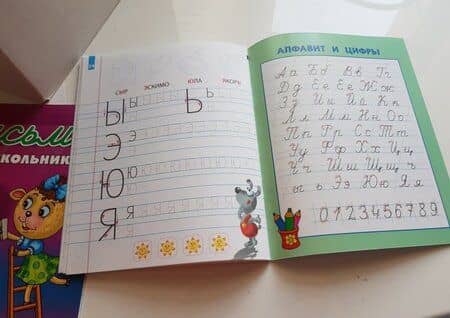 СЫР ЭСКИМО ЮЛА ЯКОРЬ
Ы ы Ь ь
Э э
Ю ю
Я я
сьм
КОЛЬНИК
АЛФАВИТ И ЦИФРЫ
Аа Бб Вв Гг
Дд Ее Ёё Жж
Зз Ии Йй Кк
Лл Мм Нн Оо
Пп Рр Сс Тт
Уу Фф Хх Цц
Чч Шш Щщ ъ
ы ь Ээ Юю Яя
0 1 2 3 4 5 6 7 8 9